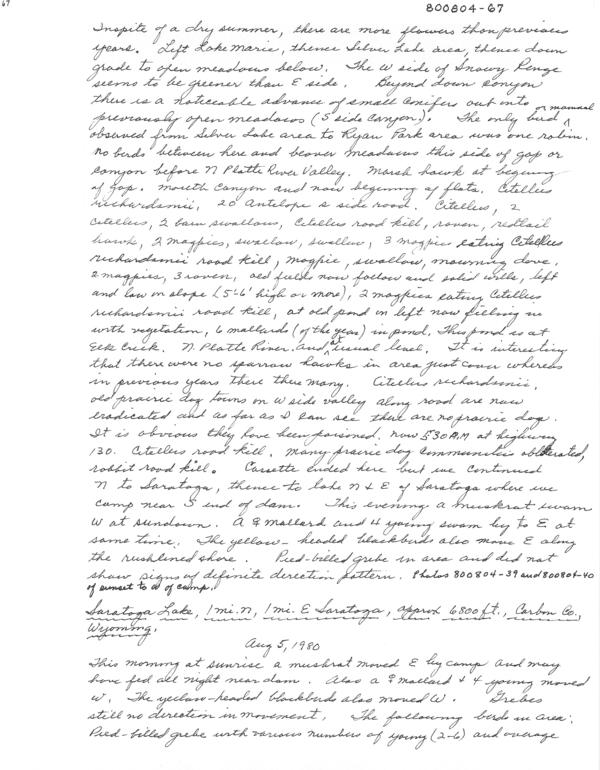 67
800804-67
Inspite of a dry summer, there are more flowers than previous
years. Left Lake Marie, thence Silver Lake area, thence down
grade to open meadows below. The W side of Snowy Range
seems to be greener than E side. Beyond down canyon
there is a noticeable advance of small conifers out onto
previously open meadows (S side canyon). The only bird ^ or mammal
observed from Silver Lake area to Ryan Park area was one robin.
No birds between here and beaver meadows this side of gap or
canyon before N Platte River Valley. Marsh hawk at beginning
of gap. mouth canyon and now beginning of flats. Citellus
richardsonii, 20 Antelope s side road. Citellus, 2
citellus, 2 barn swallows, Citellus road kill, raven, redtail
hawk, 2 magpies, swallow, swallow, 3 magpies eating Citellus
richardsonii road kill, magpie, swallow, mourning dove,
2 magpies, 3 raven, old fields now fallow and solid with, left
and law on slope (5-6' high or more), 2 magpies eating Citellus
richardsonii road kill, at old pond on left now filling in
with vegetation, 6 mallards (of the year) in pond. This pond is at
Elk Creek. N. Platte River. And at usual level. It is interesting
that there were no sparrow hawks in area just cover whereas
in previous years there there many. Citellus richardsonii,
old prairie dog towns on W side valley along road are now
eradicated and as far as I can see there are no prairie dog.
It is obvious they have been poisoned. now 530 AM at highway
130. Citellus road kill. Many prairie dog communities obliterated,
rabbit road kill. Cassette ended here but we continued
N to Saratoga, thence to lake N & E of Saratoga where we
camp near S end of dam. This evening a muskrat swam
W at sundown. A ♀ mallard and 4 young swam by to E at
same time. The yellow-headed blackbirds also move E along
the rushlined shore. Pied-billed grebe in area and did not
show signs of definite direction pattern. Photos 800804-39 and 800804-40
of sunset to W of camp.
Saratoga Lake, 1 mi. N, 1 mi. E Saratoga, approx 6800 ft., Carbon Co.,
Wyoming.
Aug 5, 1980
This morning at sunrise a muskrat moved E by camp and may
have fed all night near dam. Also a ♀ mallard & 4 young moved
W. The yellow-headed blackbirds also moved W. Grebes
still no direction in movement. The following birds in area:
Pied-billed grebe with various numbers of young (2-6) and average